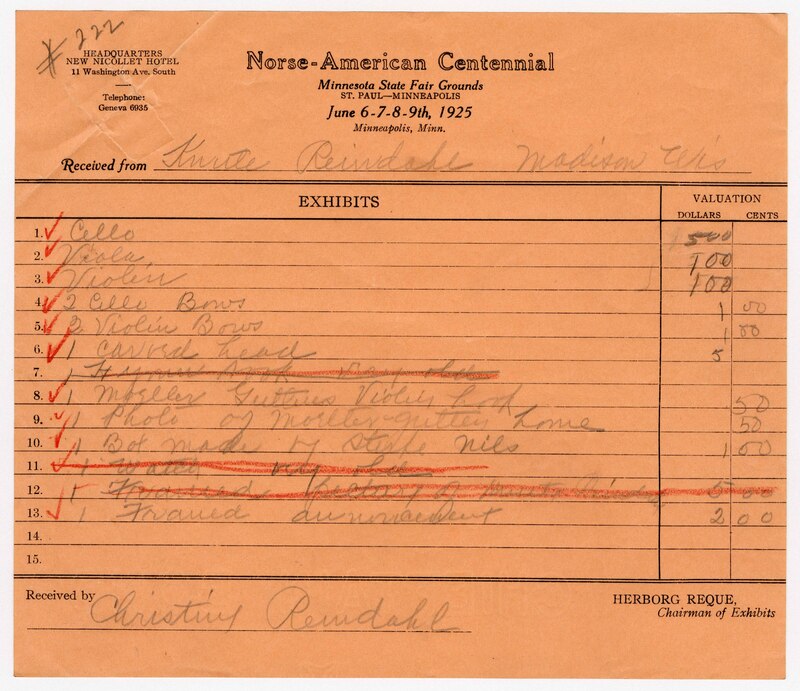 # 222
HEADQUARTERS
NEW NICOLLET HOTEL
11 Washington Ave. South
Telephone:
Geneva 6935
Norse-American Centennial
Minnesota State Fair Grounds
ST. PAUL—MINNEAPOLIS
June 6-7-8-9th, 1925
Minneapolis, Minn.
Received from Knute Reindahl Madison Wis
EXHIBITS VALUATION
DOLLARS CENTS
1. Cello 500
2. Viola 100
3. Violin 100
4. 2 Cello Bows 1 00
5. 2 Violin Bows 1 00
6. 1 carved head 5
7. 1 book very old
8. 1 Moeller Guttens Violin book 50
9. 1 Photo of Moeller-gutten home 50
10. 1 Box made of Nils 1 00
11. 1 very old
12. 1 history of 5 00
13. 1 Framed announcement 2 00
14.
15.
Received by Christing Reindahl
HERBORG REQUE,
Chairman of Exhibits